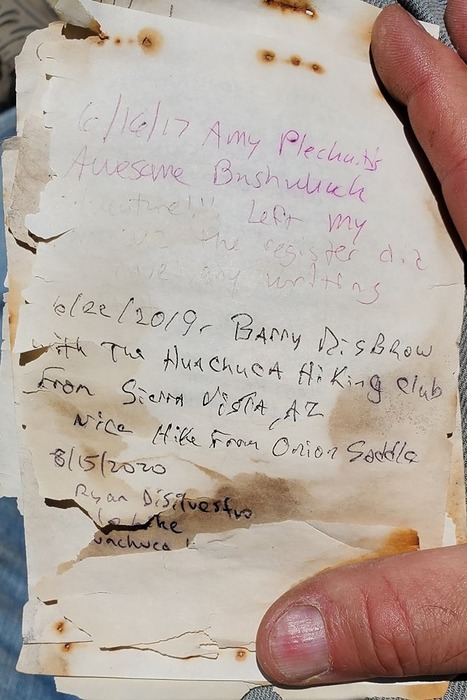 6/16/17 Amy Plechaitis
Awesome Bushwhack
Left my
the register did
any writing
6/22/2019, Barry DisBrow
with The Huachuca Hiking Club
From Sierra Vista, AZ
Nice Hike From Onion Saddle
8/15/2020
Ryan Disilvestro